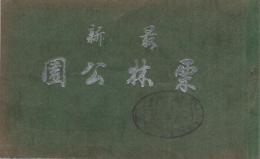 最新
栗林公園